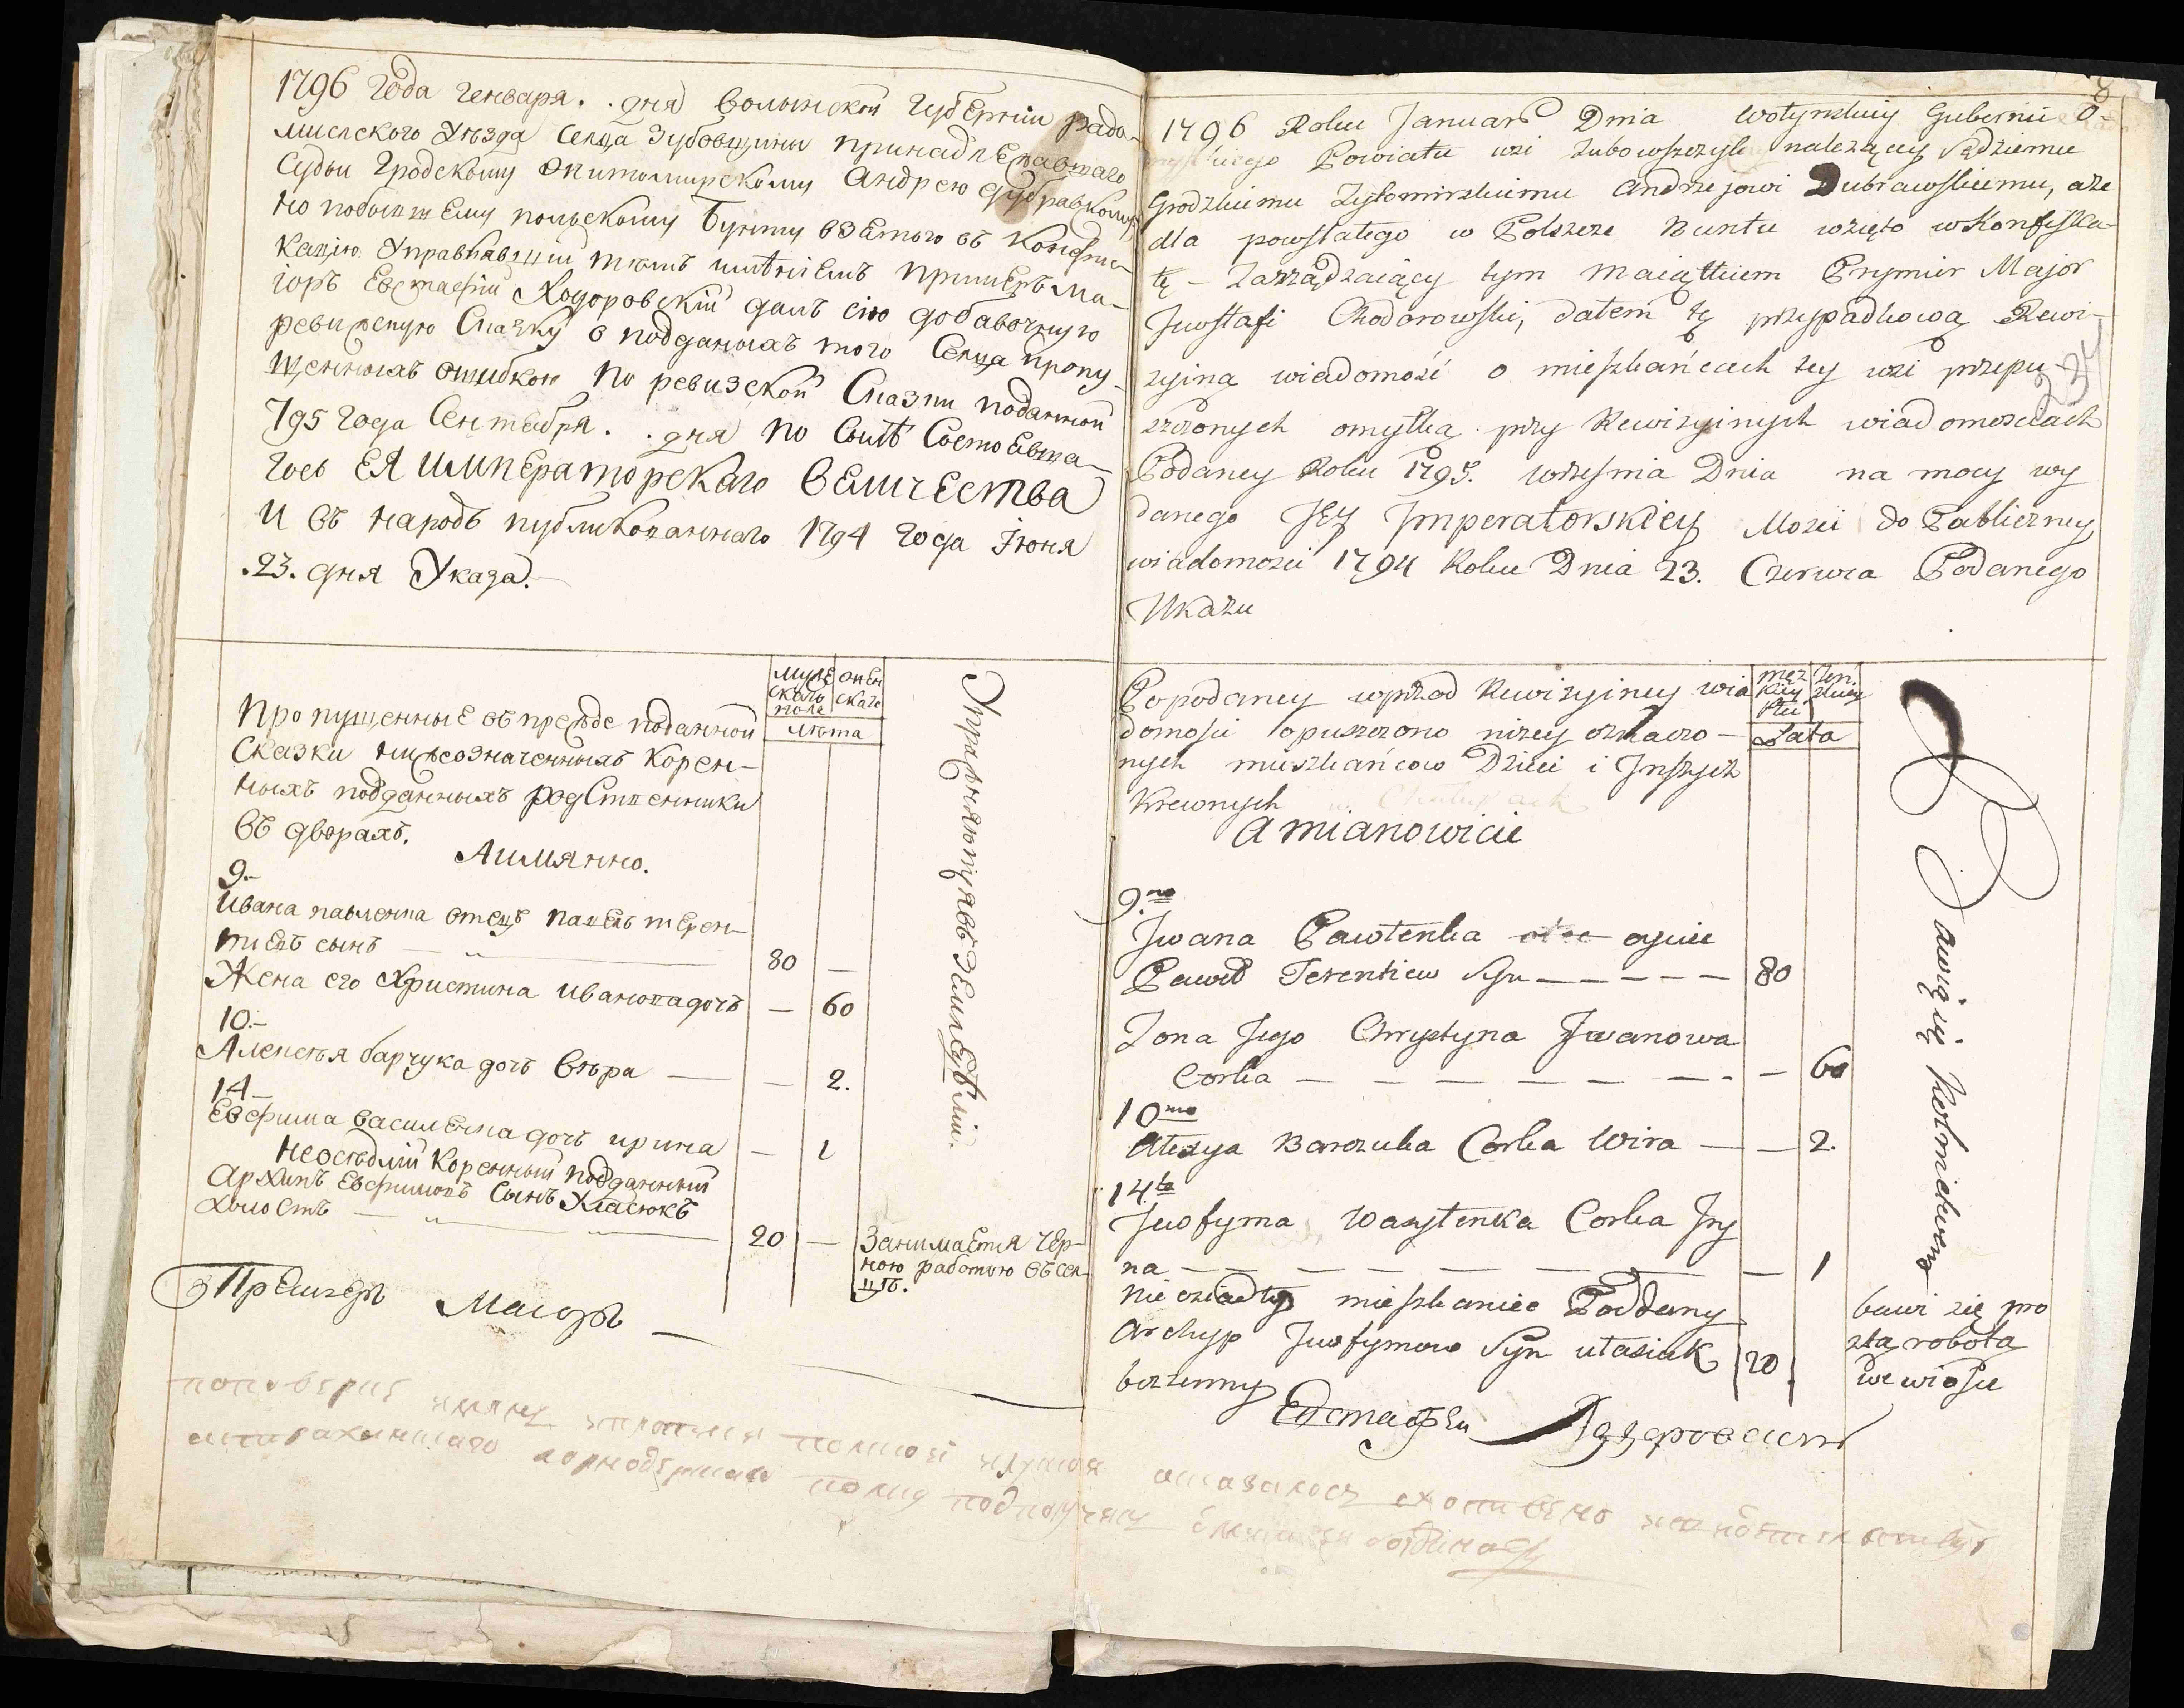 1796 года генваря . . дня волынской губернии радо-
мисльского уѣзда селца Зубовщины принадлежавшаго
судьи гродскому житомирскому андрею дубравскому,
но побывшему польскому бунту взятого въ конфис-
кацію. Управлявшій тѣмъ имѣніемъ примеръ ма-
іоръ Евстафій Ходоровскій далъ сію добавочную
ревизскую сказку о подданныхъ того селца пропу-
щенныхъ ошибкою по ревизской сказки поданной
795 года сентября . . дня по силѣ состоявша-
гось ЕЯ императорскаго величества
и въ народъ публикованнаго 1794 года іюня
.23. дня Указа.
муже
скаго
пола
жен
скаго
лѣта
Пропущенные въ прежде поданной
сказки нижеозначенныхъ корен-
ныхъ подданныхъ родственники
въ дворахъ.
Аимянно.
9.-
Ивана павленка отецъ павелъ терен-
тиевъ сынъ — 80 —
Жена его Христина Иванова дочь — 60
10.-
Алексѣя барчука дочь вѣра — — 2.
14-
Евфима василенка дочь ирина — 1
Неосѣдлій коренный подданный
Архипъ Евфимовъ сынъ Уласюкъ
холостъ — 20 —
Упражняютца въ земледѣліи.
Занимается чер-
ною работою въ сел
цѣ.
Премьеръ Маиоръ
8
234
1796 Roku Januar Dnia Wołynskiy Gubernii O-
Powiatu wsi Zubowszczyk należącey Sędziemu
Grodzkiemu Zytomirskiemu Andrzejowi Dubrawskiemu, aże
dla powstałego w Polszcze Buntu wzięto w Konfiska-
tę - Zarządzaiący tym maiątkiem Prymier Major
Jwostafi Chodorowski, dałem tę przypadkową Rewi-
zyiną wiadomość o mieszkańcach tey wsi przepu-
szczonych omyłką przy Rewizyinych wiadomosciach
Podaney Roku 1795. wrzesnia Dnia na mocy wy
danego JEy Jmperatorskiey Mosci do Publiczney
wiadomosci 1794 Roku Dnia 23. Czerwca Podanego
Ukazu
męz
kiey
Płci
żeń.
skiey
Lata
Popodaney wprzod Rewizyiney wia
domości opuszczono niżey oznaczo-
nych mieszkańcow Dzieci i Jnszych
Krewnych
Amianowicie
9.no
Jwana Pawłenka oyciec
Paweł Terentiew Syn — — — — — 80
Zona Jego Chrystyna Jwanowa
Corka — — — — — — — 60
10mo
Alexya Barczuka Corka Wira — — 2.
14.to
Jwofyma Wasylenka Corka Jry
na — — — — — — — — 1
Nie osiadły mieszkaniec Poddany
Archyp Jwofymow Syn Ułasiuk 20.
bezżenny
Bawią się Rolnictwem
bawi się pro
stą robotą
we wiosce
Евстафей Ходоровский